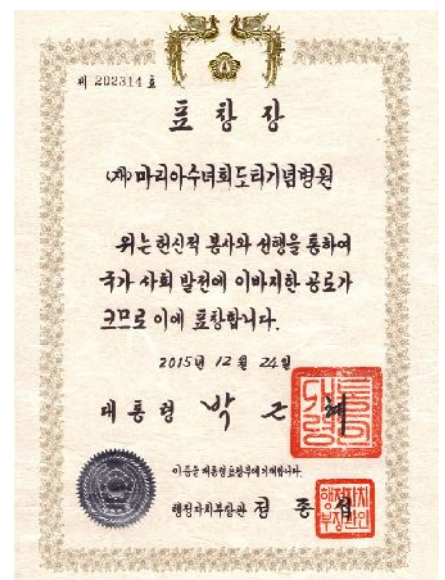 제 202314 호
표 창 장
(재)마리아수녀회도티기념병원
위는 헌신적 봉사와 선행을 통하여
국가 사회 발전에 이바지한 공로가
크므로 이에 표창합니다.
2015년 12월 24일
대통령 박 근 혜
대통령의인
이 증을 대통령표창부에 기재합니다.
행정자치부장관 정 종 섭
행정자치부장관인